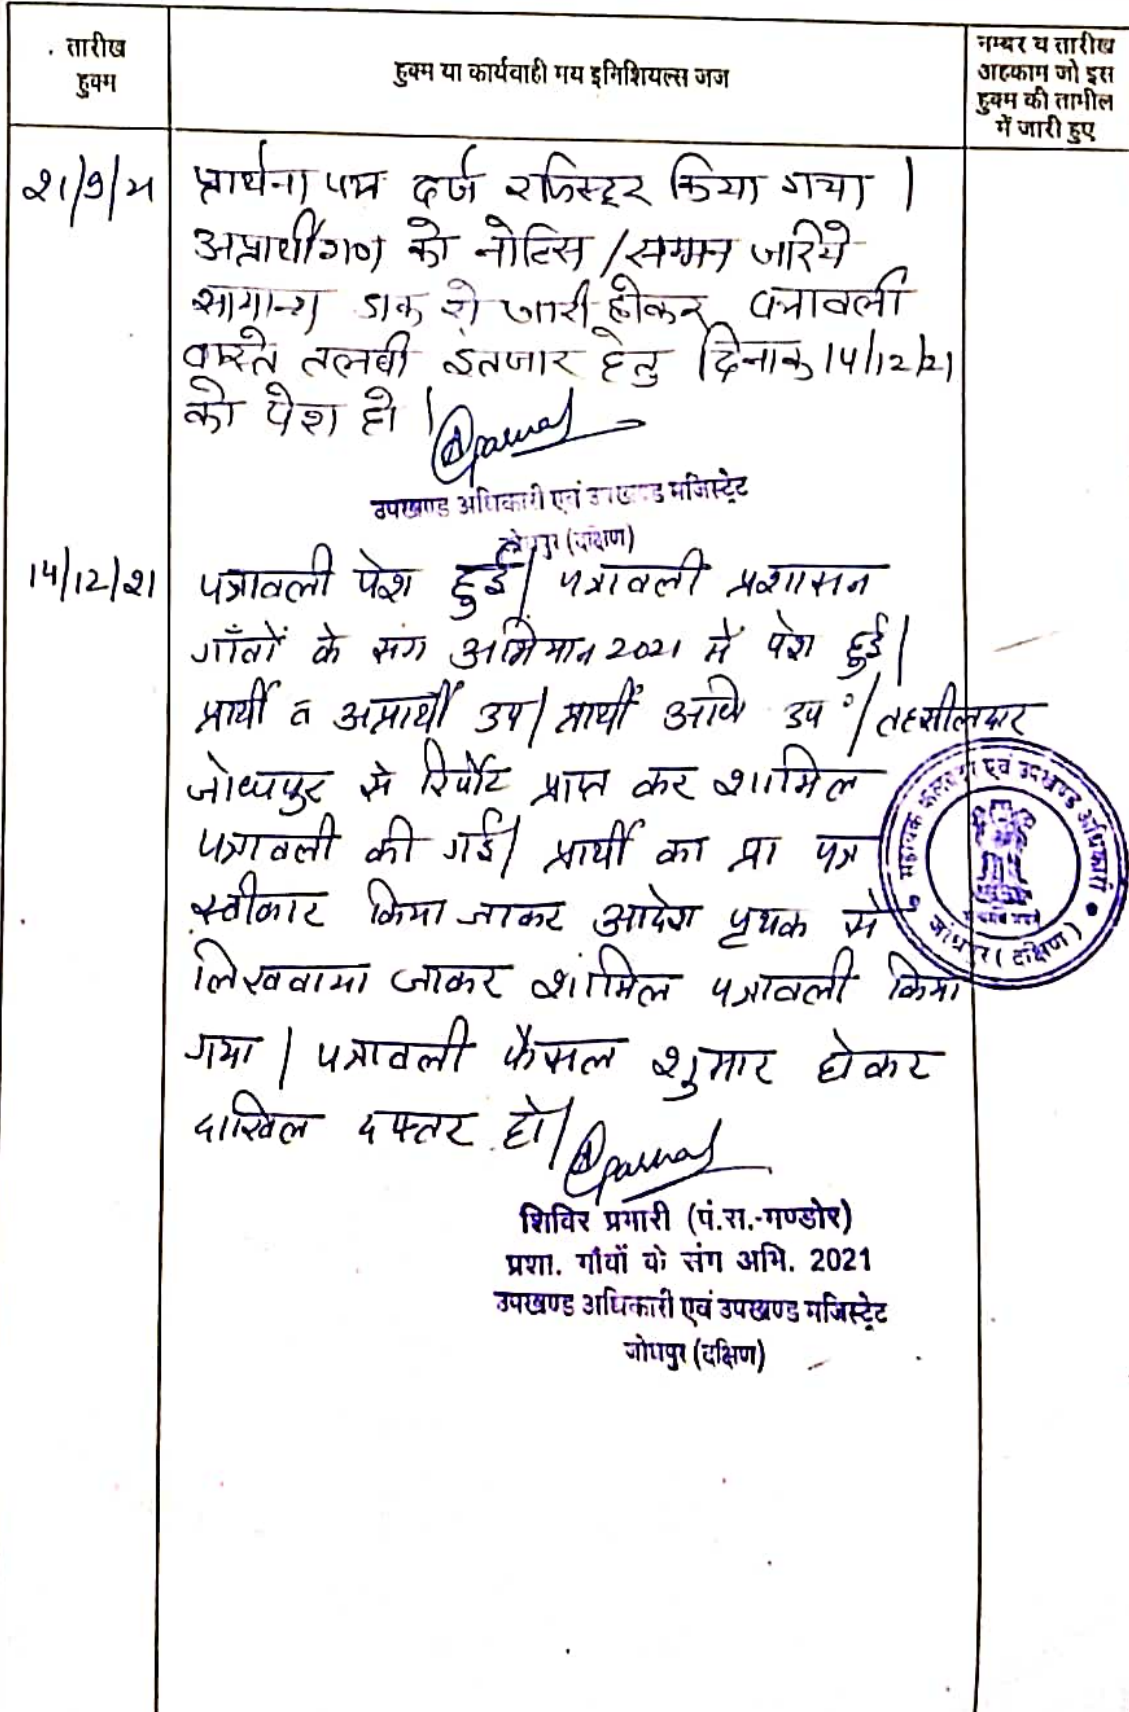 तारीख
हुक्म
हुक्म या कार्यवाही मय इनिशियल्स जज
नम्बर व तारीख
अहकाम जो इस
हुक्म की तामील
में जारी हुए
21/9/21
प्रार्थना पत्र दर्ज रजिस्टर किया गया |
अप्रार्थीगण को नोटिस / सम्मन जरिये
सामान्य डाक से जारी होकर पत्रावली
वास्ते तलबी इंतजार हेतु दिनांक 14/12/21
को पेश हो |
उपखण्ड अधिकारी एवं उपखण्ड मजिस्ट्रेट
जोधपुर (दक्षिण)
14/12/21
पत्रावली पेश हुई | पत्रावली प्रशासन
गाँवों के संग अभियान 2021 में पेश हुई |
प्रार्थी व अप्रार्थी उप | प्रार्थी अधि उप॰ | तहसीलदार
जोधपुर से रिर्पोट प्राप्त कर शामिल
पत्रावली की गई | प्रार्थी का प्रा पत्र
स्वीकार किया जाकर आदेश पृथक से
लिखवाया जाकर शामिल पत्रावली किया
गया | पत्रावली फैसल शुमार होकर
दाखिल दफ्तर हो |
सहायक कलक्टर एवं उपखण्ड अधिकारी
जोधपुर (दक्षिण)
शिविर प्रभारी (पं.स.-मण्डोर)
प्रशा. गाँवों के संग अभि. 2021
उपखण्ड अधिकारी एवं उपखण्ड मजिस्ट्रेट
जोधपुर (दक्षिण)